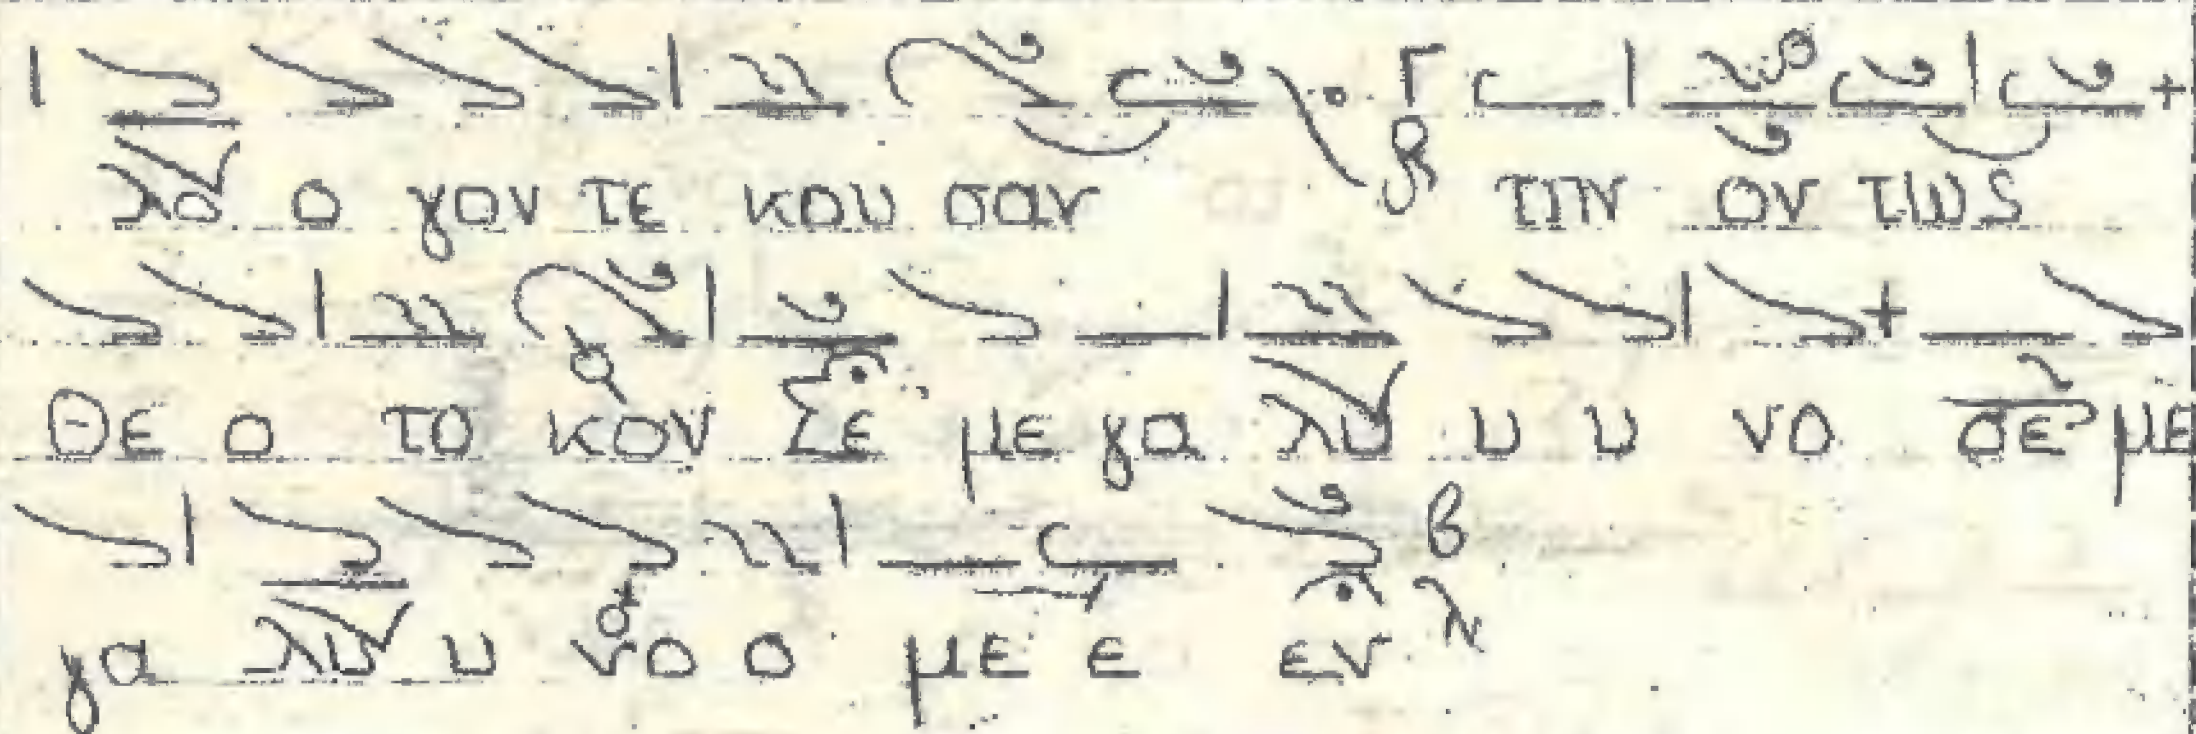 λο ο γον τε κου σαν την ον τως
Θε ο το κον Σε με γα λυ υ υ νο σε με
γα λυ υ νο ο με ε εν